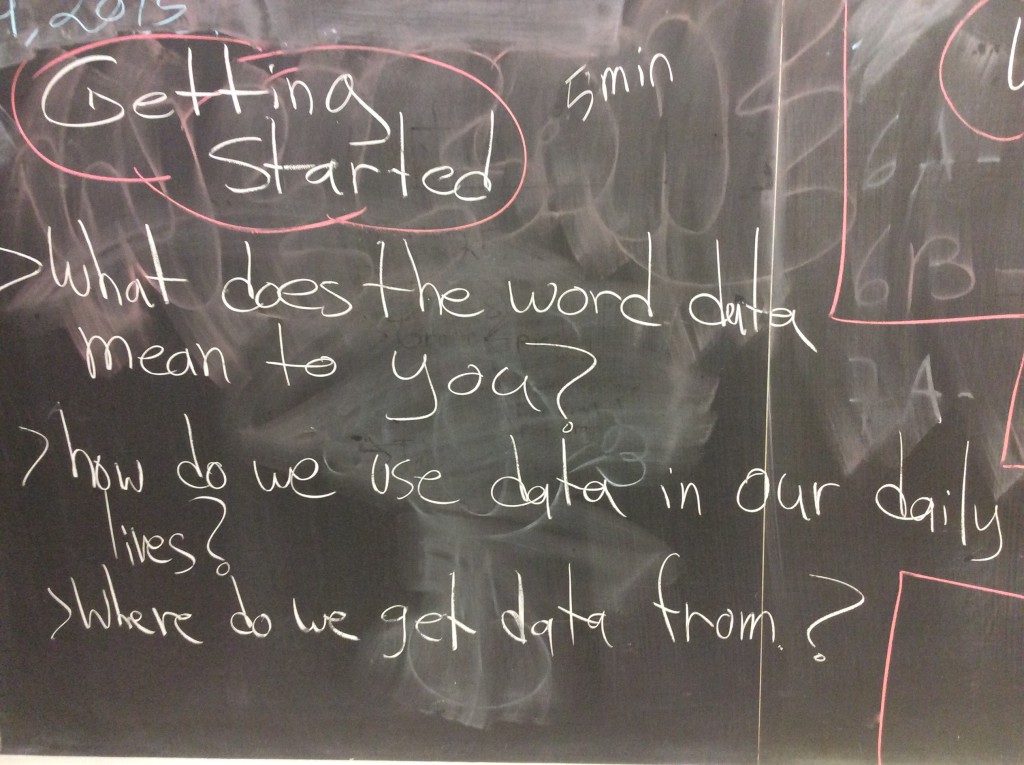 , 2015
Getting
Started
5 min
>What does the word data
mean to you?
>how do we use data in our daily
lives?
>Where do we get data from?
6A-
6B-
7A-